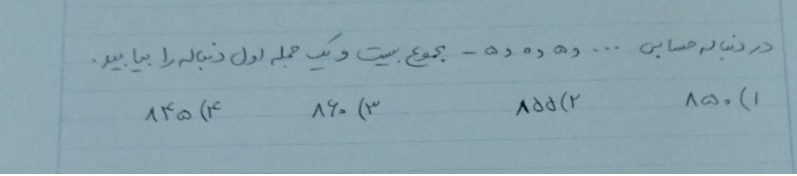 در دنباله حسابی ... و ۵ و ۰ و ۵ - مجموع بیست و یک جمله اول دنباله را بیابید.
۱) ۸۵۰ ۲) ۸۵۵ ۳) ۸۶۰ ۴) ۸۴۵